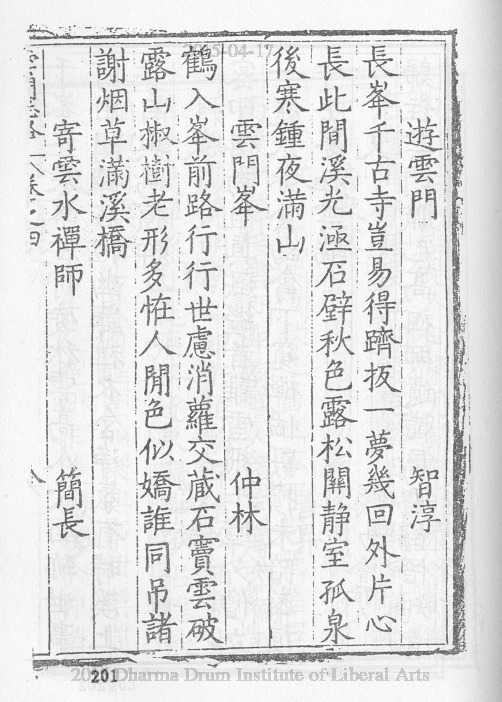 遊雲門 智淳
長峯千古寺豈易得躋扳一夢幾回外片心
長此間溪光涵石壁秋色露松關静室孤泉
後寒鍾夜滿山
雲門峯 仲林
鶴入峯前路行行世慮消蘿交蔵石竇雲破
露山椒樹老形多恠人閒色似嬌誰同吊諸
謝烟草滿溪橋
寄雲水禪師 簡長
卷之四
201
Dharma Drum Institute of Liberal Arts
-04-17